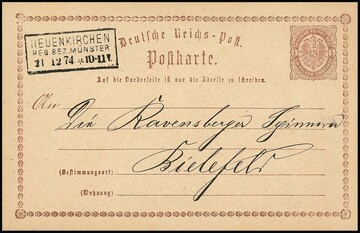 NEUENKIRCHEN
REG. BEZ. MÜNSTER
21 12 74 * 10-11 V.
Deutsche Reichs-Post.
Postkarte.
Auf die Vorderseite ist nur die Adresse zu schreiben.
An
Die Ravensberger Spinnerei
Bielefeld
(Bestimmungsort)
(Wohnung)